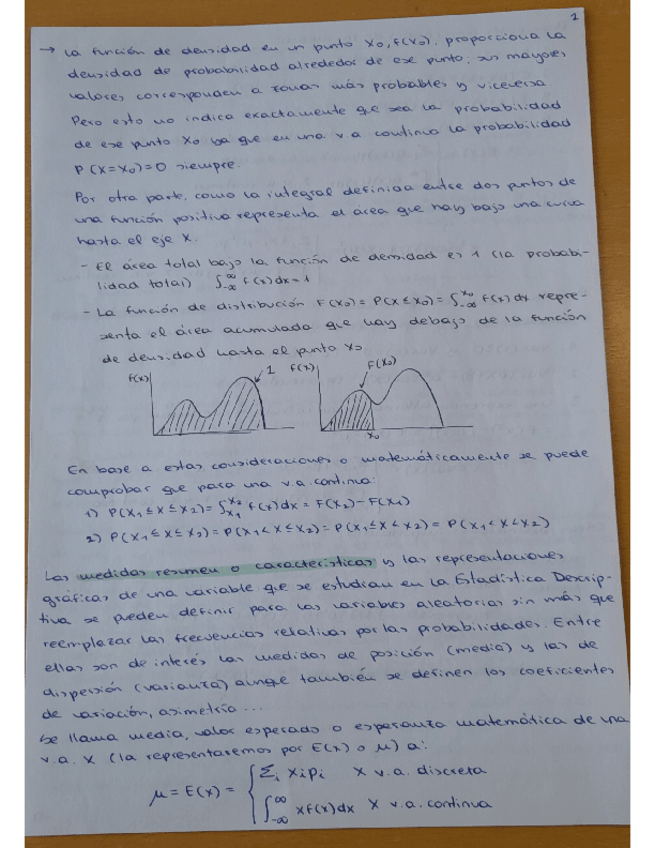 1
→ La función de densidad en un punto x₀, f(x₀), proporciona la
densidad de probabilidad alrededor de ese punto, sus mayores
valores corresponden a zonas más probables y viceversa
Pero esto no indica exactamente que sea la probabilidad
de ese punto x₀ ya que en una v.a. continua la probabilidad
P(X=x₀)=0 siempre.
Por otra parte, como la integral definida entre dos puntos de
una función positiva representa el área que hay bajo una curva
hasta el eje X.
- El área total bajo la función de densidad es 1 (la probabi-
lidad total) ∫_{-∞}^{∞} f(x)dx=1
- La función de distribución F(x₀)=P(X≤x₀)=∫_{-∞}^{x₀} f(x)dx repre-
senta el área acumulada que hay debajo de la función
de densidad hasta el punto x₀
f(x) 1 f(x) F(x₀)
x₀
En base a estas consideraciones o matemáticamente se puede
comprobar que para una v.a. continua:
1) P(x₁≤X≤x₂)=∫_{x₁}^{x₂} f(x)dx = F(x₂)-F(x₁)
2) P(x₁≤X≤x₂)=P(x₁<X≤x₂)=P(x₁≤X<x₂)=P(x₁<X<x₂)
Las medidas resumen o características y las representaciones
gráficas de una variable que se estudian en la Estadística Descrip-
tiva se pueden definir para las variables aleatorias sin más que
reemplazar las frecuencias relativas por las probabilidades. Entre
ellas son de interés las medidas de posición (media) y las de
dispersión (varianza) aunque también se definen los coeficientes
de variación, asimetría ...
Se llama media, valor esperado o esperanza matemática de una
v.a. X (la representaremos por E(x) o μ) a:
μ = E(x) = { Σᵢ xᵢpᵢ X v.a. discreta
∫_{-∞}^{∞} xf(x)dx X v.a. continua